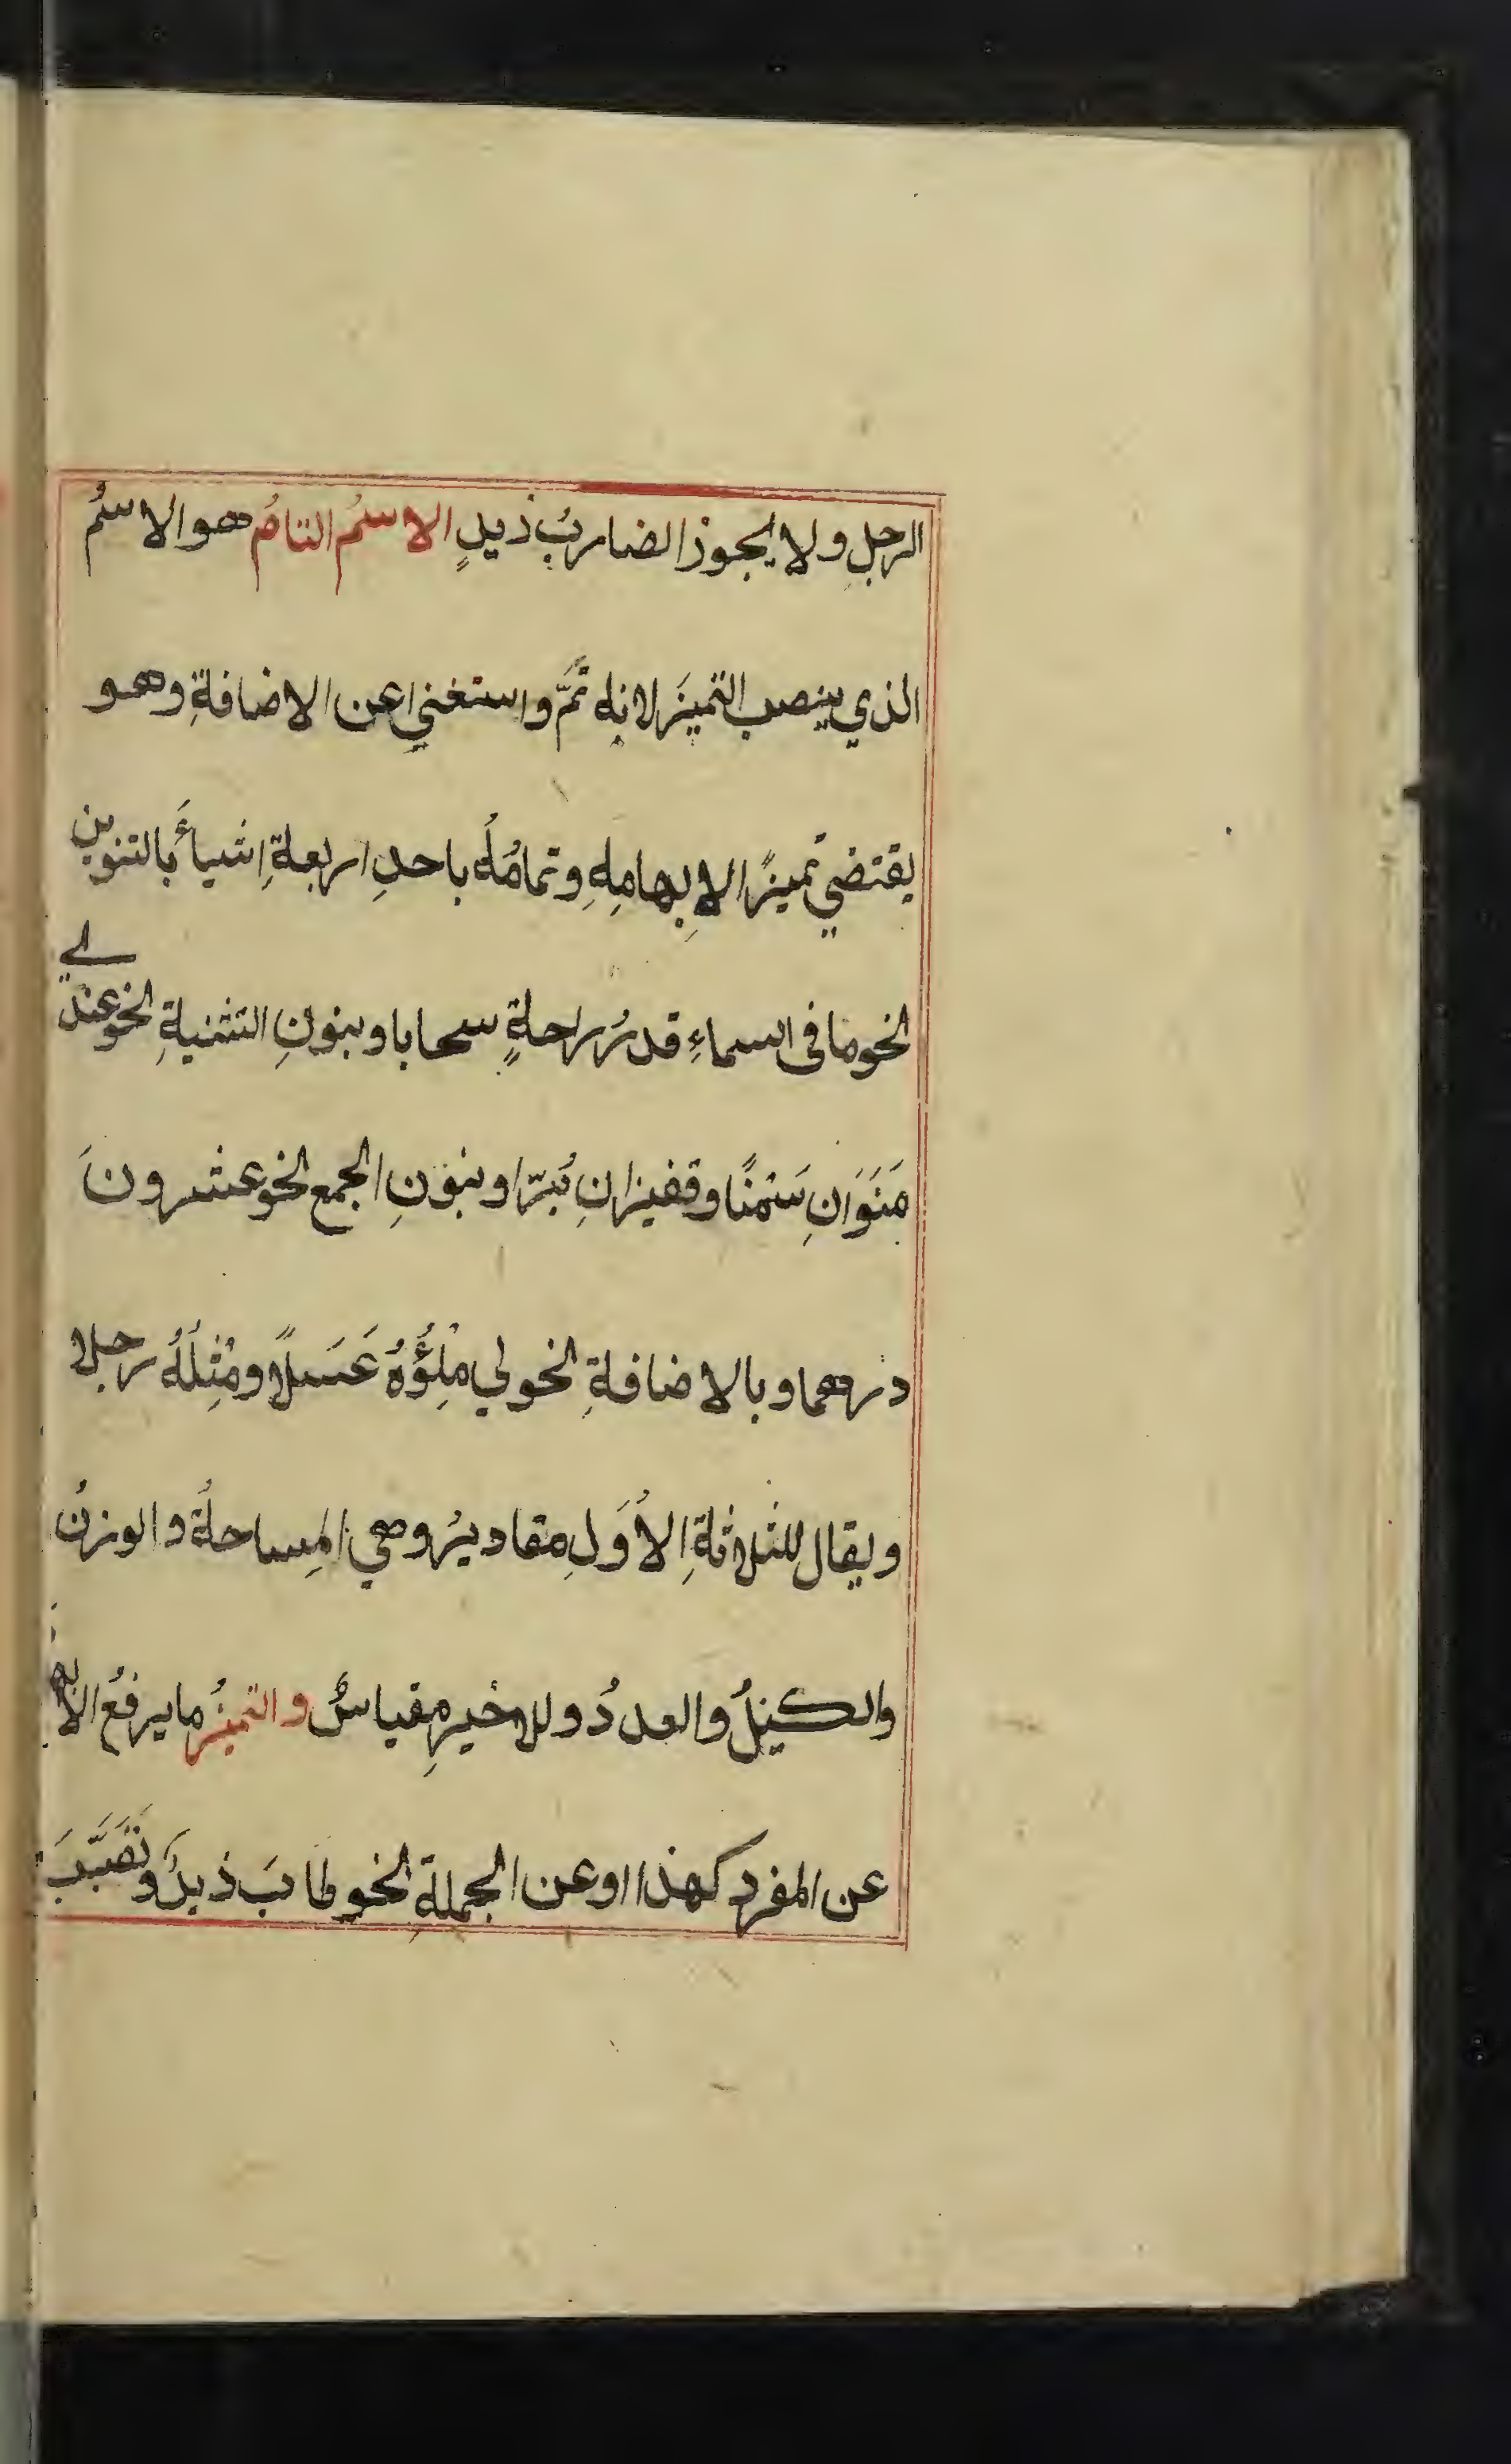 الرجلِ ولا يجوز الضاربُ زيدٍ الاسمُ التامُ هو الاسمُ
الذي ينصب التميزَ لانه تمَّ واستغني عن الاضافةِ وهو
يقتضي تميزًا لابهامِهِ وتمامُه باحدِ اربعةِ اشيأَ بالتنوين
نحو ما في السماءِ قدرُ راحةٍ سحابا وبنونِ التثنيةِ نحو عندي
مَنَوَانِ سَمْنًا وقفيزانِ بُرّا وبنونِ الجمع نحو عشرونَ
درهما وبالاضافةِ نحو لي مِلْؤُهُ عَسَلًا ومِثْلُهُ رجلا
ويقال للثلاثةِ الأُوَلِ مقاديرُ وهي المِساحةُ والوزنُ
والكيلُ والعددُ وللاخيرِ مقياسٌ والتميزُ ما يرفعُ الابه
عن المفردِ كهذا او عن الجملة نحو طابَ زيدٌ وتَصَبَّبَ